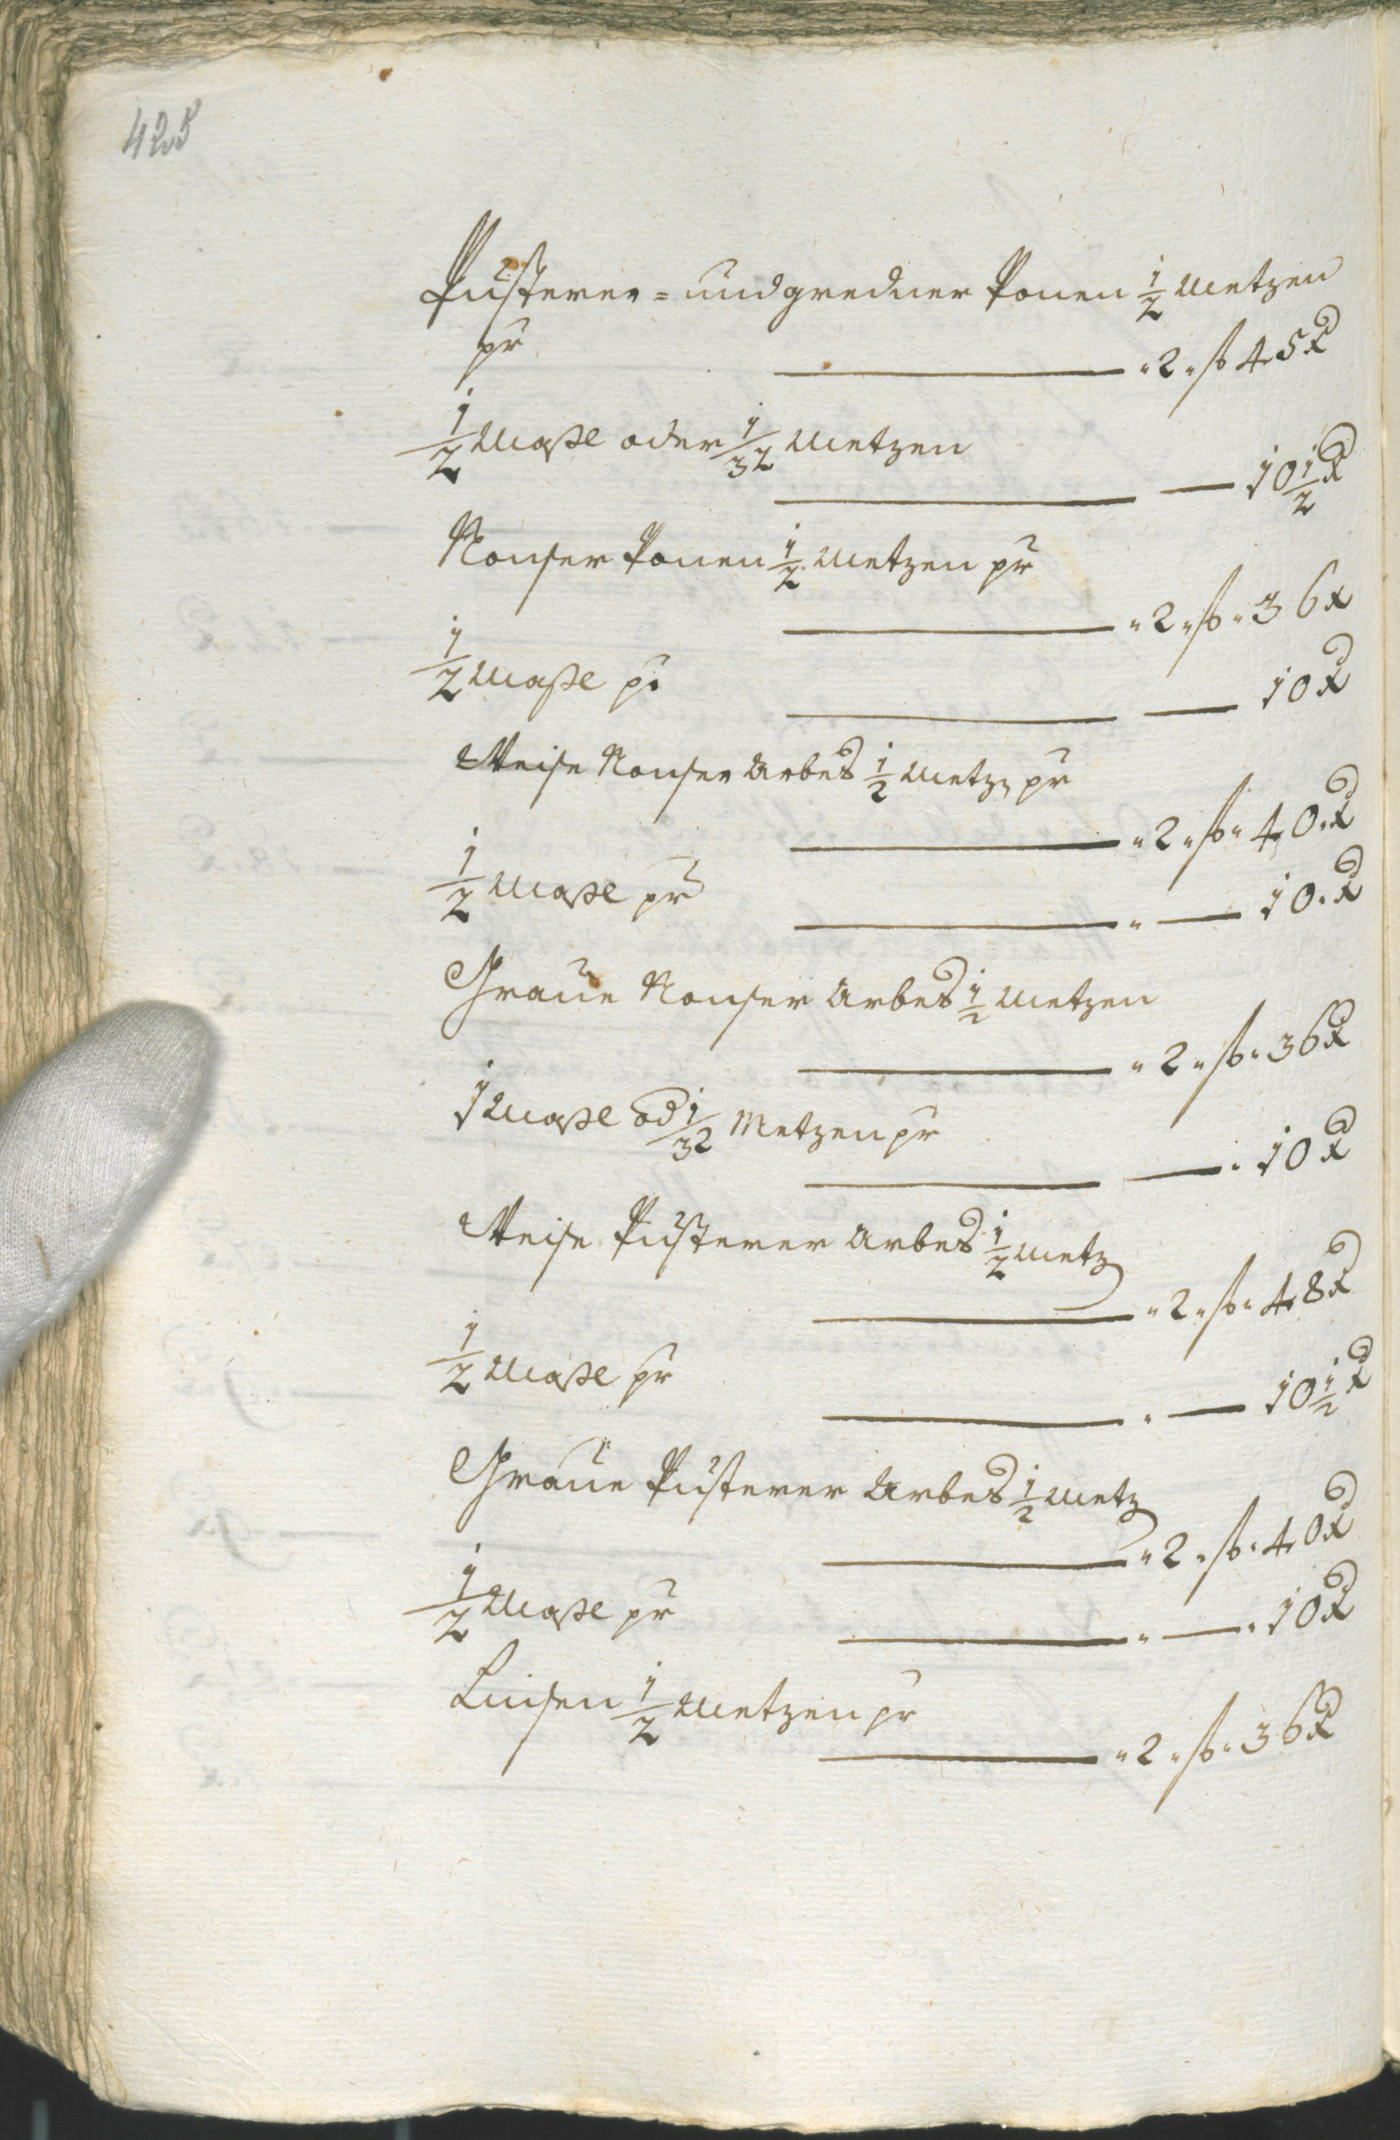 425
Pusterer= und gredner Ponen 1/2 Metzen
pr
—— „2„ fl 45 x
1/2 Maße oder 1/32 Metzen
—— — 10 1/2 x
Nonser Ponen 1/2 Metzen pr
—— „2„ fl„ 36 x
1/2 Maße pr
—— — 10 x
Weise Nonser Arbes 1/2 Metzn pr
—— „2„ fl„ 40 x
1/2 Maße pr
—— „ — 10 x
Graue Nonser Arbes 1/2 Metzen
—— „2„ fl„ 36 x
1 Maße od 1/32 Metzen pr
—— — 10 x
Weise Pusterer Arbes 1/2 Metz
—— „2„ fl„ 48 x
1/2 Maße pr
—— „ — 10 1/2 x
Graue Pusterer Arbes 1/2 Metz
—— „2„ fl„ 40 x
1/2 Maße pr
—— „ — „10 x
Linsen 1/2 Metzen pr
—— „2„ fl„ 36 x